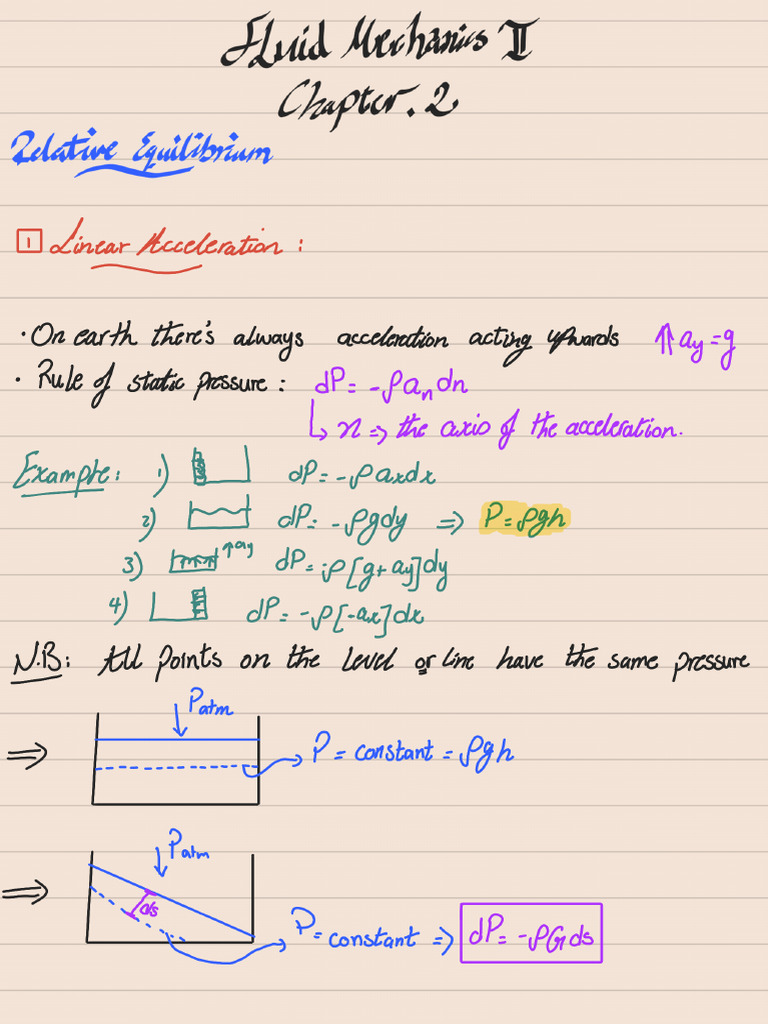 Fluid Mechanics II
Chapter. 2
Relative Equilibrium
1 Linear Acceleration :
· On earth there's always acceleration acting upwards ⇈ ay = g
· Rule of static pressure : dP = -ρ an dn
↳ n => the axis of the acceleration.
Example : 1) dP = -ρ ax dx
2) dP = -ρg dy => P = ρgh
3) ↑ay dP = -ρ[g + ay]dy
4) dP = -ρ[-ax]dx
N.B : All points on the level or line have the same pressure
Patm
=> P = constant = ρgh
Patm
=> ds
P = constant => dP = -ρG ds